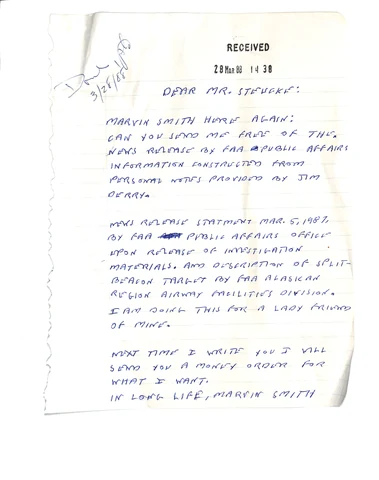 RECEIVED
28 MAR 88 14 38
Done
3/28/88
DEAR MR. STEUCKE:
MARVIN SMITH HERE AGAIN:
CAN YOU SEND ME FREE OF THE.
NEWS RELEASE BY FAA PUBLIC AFFAIRS
INFORMATION CONSTRUCTED FROM
PERSONAL NOTES PROVIDED BY JIM
DERRY.
NEWS RELEASE STATMENT MAR. 5, 1987.
BY FAA PUBLIC AFFAIRS OFFICE
UPON RELEASE OF INVESTIGATION
MATERIALS. AND DESCRIPTION OF SPLIT-
BEACON TARGET BY FAA ALASICAN
REGION AIRWAY FACILITIES DIVISION.
I AM DOING THIS FOR A LADY FRIEND
OF MINE.
NEXT TIME I WRITE YOU I VILL
SEND YOU A MONEY ORDER FOR
WHAT I WANT.
IN LONG LIFE, MARVIN SMITH